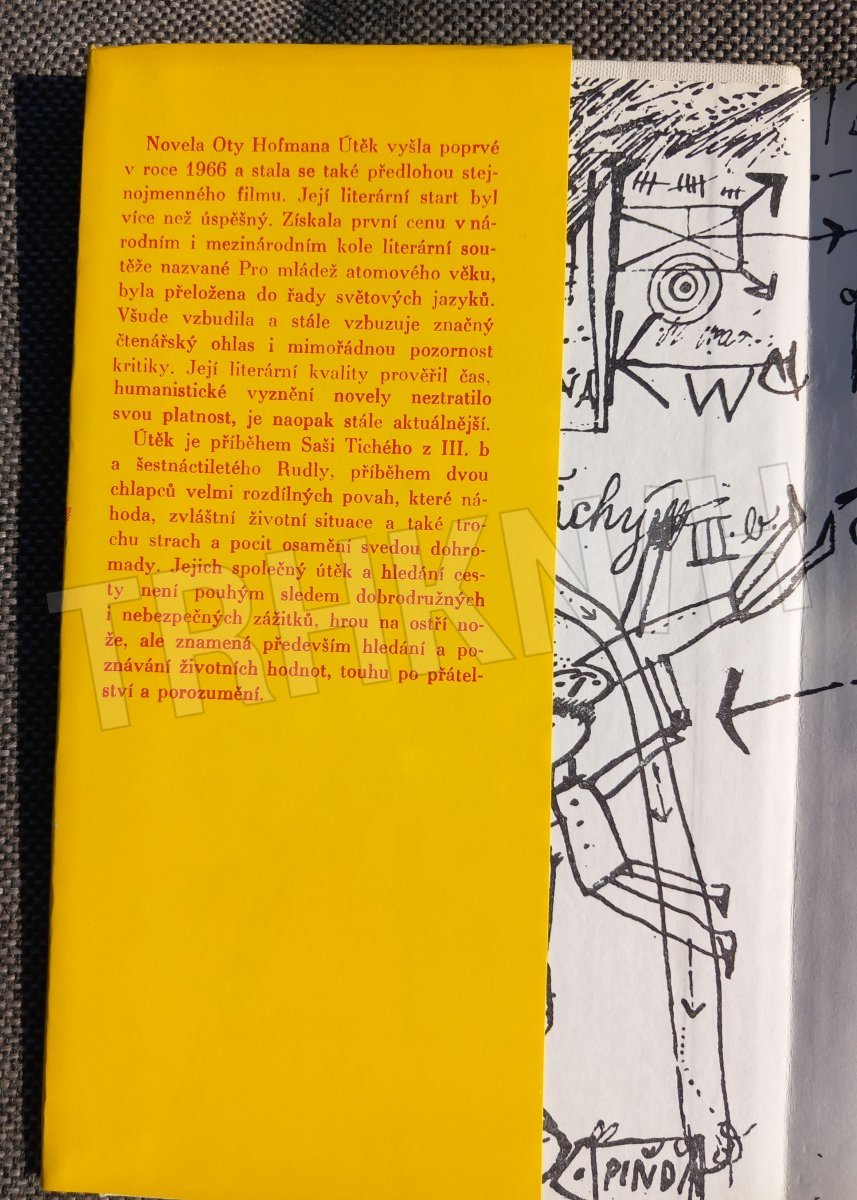 Novela Oty Hofmana Útěk vyšla poprvé
v roce 1966 a stala se také předlohou stej-
nojmenného filmu. Její literární start byl
více než úspěšný. Získala první cenu v ná-
rodním i mezinárodním kole literární sou-
těže nazvané Pro mládež atomového věku,
byla přeložena do řady světových jazyků.
Všude vzbudila a stále vzbuzuje značný
čtenářský ohlas i mimořádnou pozornost
kritiky. Její literární kvality prověřil čas,
humanistické vyznění novely neztratilo
svou platnost, je naopak stále aktuálnější.
Útěk je příběhem Saši Tichého z III. b
a šestnáctiletého Rudly, příběhem dvou
chlapců velmi rozdílných povah, které ná-
hoda, zvláštní životní situace a také tro-
chu strach a pocit osamění svedou dohro-
mady. Jejich společný útěk a hledání ces-
ty není pouhým sledem dobrodružných
i nebezpečných zážitků, hrou na ostří no-
že, ale znamená především hledání a po-
znávání životních hodnot, touhu po přátel-
ství a porozumění.
III.b.
PIŇĎA
TRHKNIH